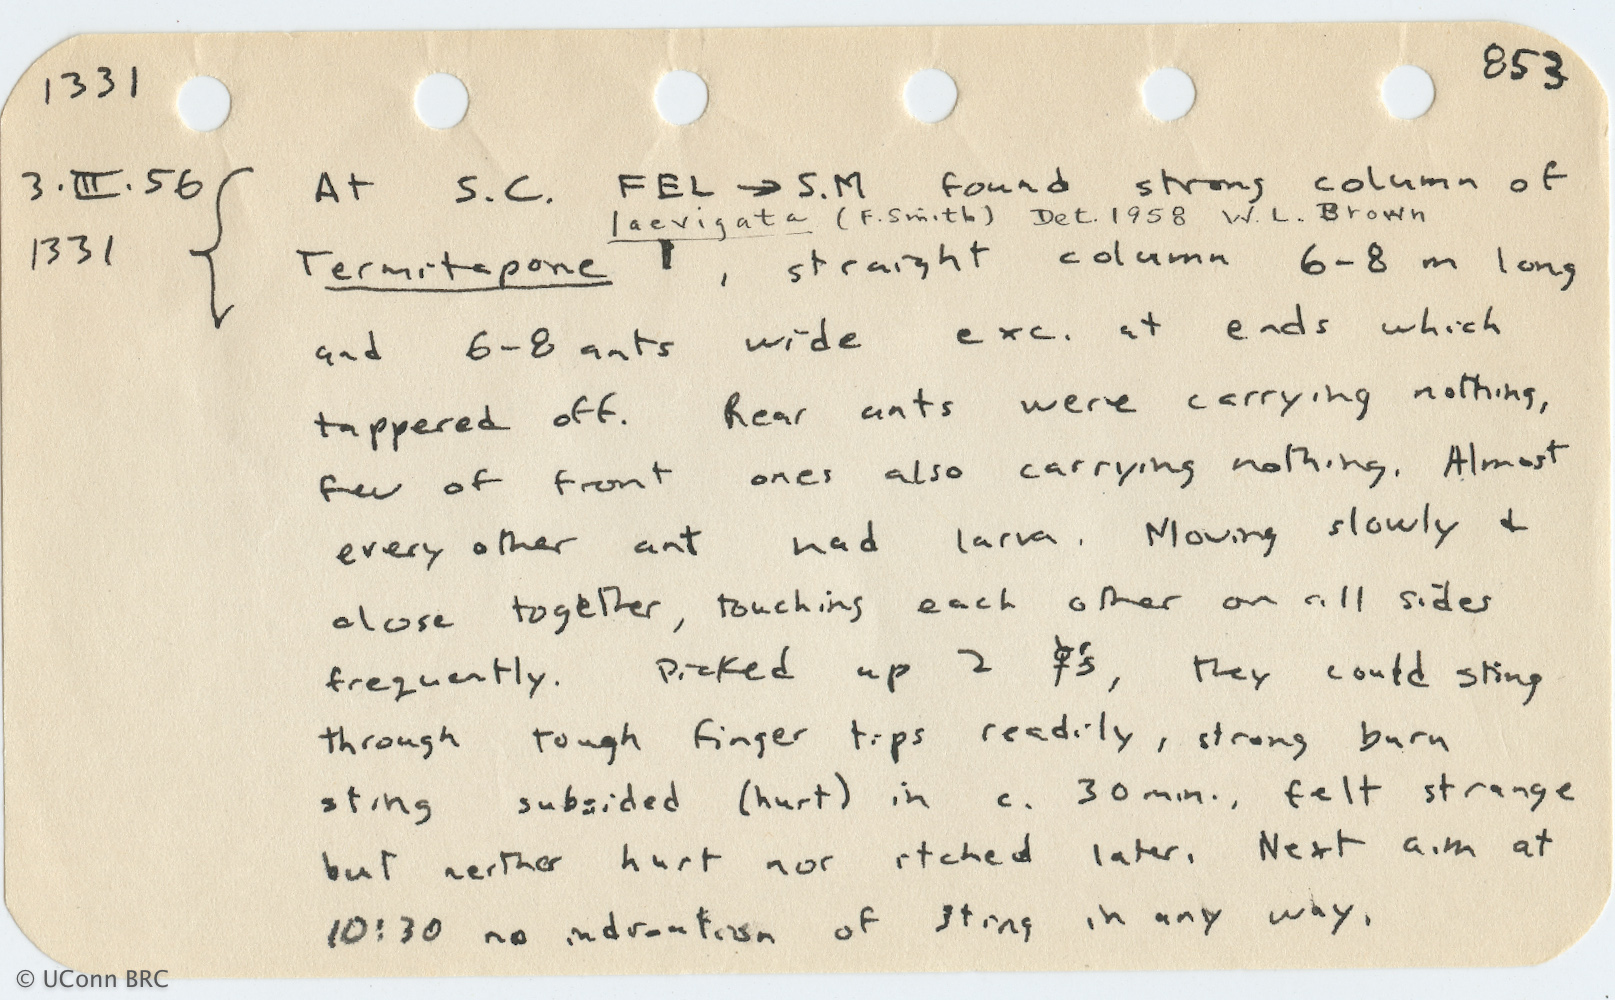 1331 853
3.III.56 At S.C. FEL → S.M found strong column of
laevigata (F. Smith) Det. 1958 W. L. Brown
1331 Termitopone , straight column 6-8 m long
and 6-8 ants wide exc. at ends which
tappered off. Rear ants were carrying nothing,
few of front ones also carrying nothing. Almost
every other ant had larva. Moving slowly &
close together, touching each other on all sides
frequently. Picked up 2 ☿'s, they could sting
through tough finger tips readily, strong burn
sting subsided (hurt) in c. 30 min., felt strange
but neither hurt nor itched later. Next a.m at
10:30 no indication of sting in any way.
© UConn BRC